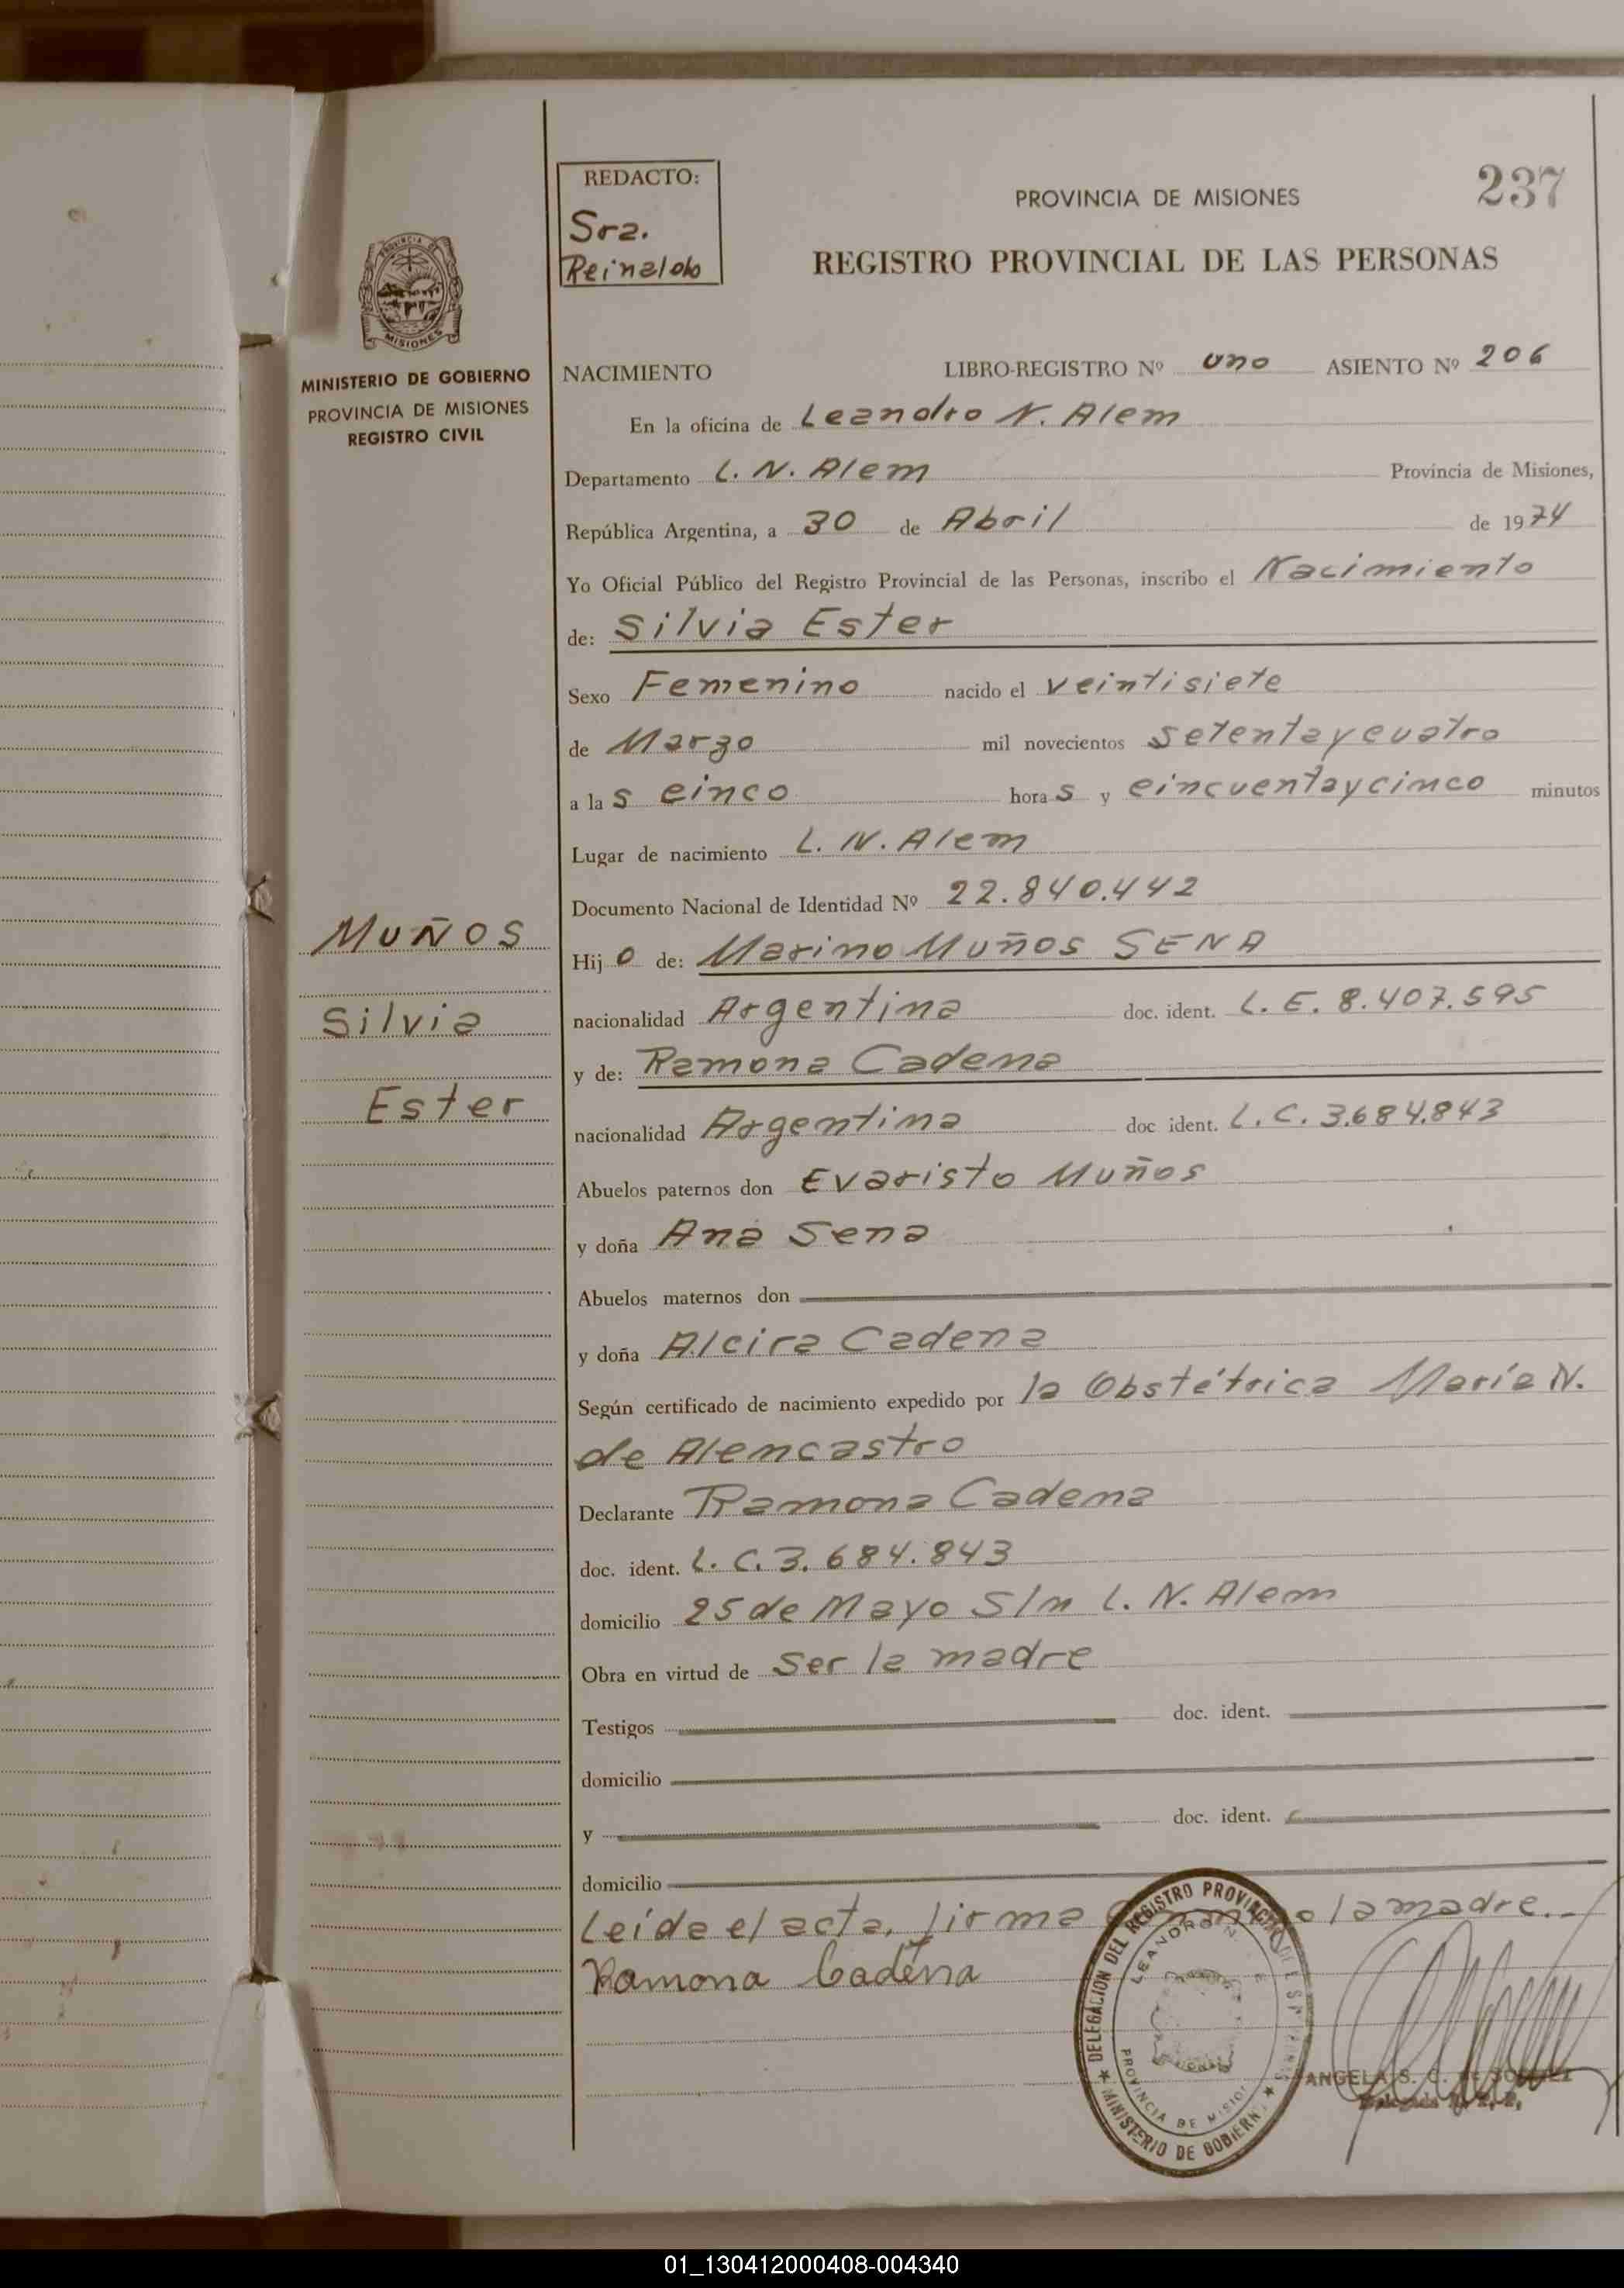 REDACTO:
Sra.
Reinaldo
PROVINCIA DE MISIONES
237
REGISTRO PROVINCIAL DE LAS PERSONAS
PROVINCIA DE
MISIONES
MINISTERIO DE GOBIERNO
PROVINCIA DE MISIONES
REGISTRO CIVIL
NACIMIENTO LIBRO-REGISTRO Nº uno ASIENTO Nº 206
En la oficina de Leandro N. Alem
Departamento L. N. Alem Provincia de Misiones,
República Argentina, a 30 de Abril de 1974
Yo Oficial Público del Registro Provincial de las Personas, inscribo el Nacimiento
de: Silvia Ester
Sexo Femenino nacido el veintisiete
de Marzo mil novecientos setentaycuatro
a las cinco horas y cincuentaycinco minutos
Lugar de nacimiento L. N. Alem
Documento Nacional de Identidad Nº 22.840.442
MUÑOS
Silvia
Ester
Hijo de: Marino Muños SENA
nacionalidad Argentina doc. ident. L. E. 8.407.595
y de: Ramona Cadena
nacionalidad Argentina doc ident. L. C. 3.684.843
Abuelos paternos don Evaristo Muños
y doña Ana Sena
Abuelos maternos don
y doña Alcira Cadena
Según certificado de nacimiento expedido por la Obstétrica María N.
de Alencastro
Declarante Ramona Cadena
doc. ident. L. C. 3.684.843
domicilio 25 de Mayo S/n L. N. Alem
Obra en virtud de Ser la madre
Testigos doc. ident.
domicilio
y doc. ident.
domicilio
Leída el acta, firma la madre.-
Ramona Cadena
DELEGACION DEL REGISTRO PROVINCIAL DE
LEANDRO N.
PROVINCIA DE MISIONES
MINISTERIO DE GOBIERNO
ANGELA S. C. DE
01_130412000408-004340